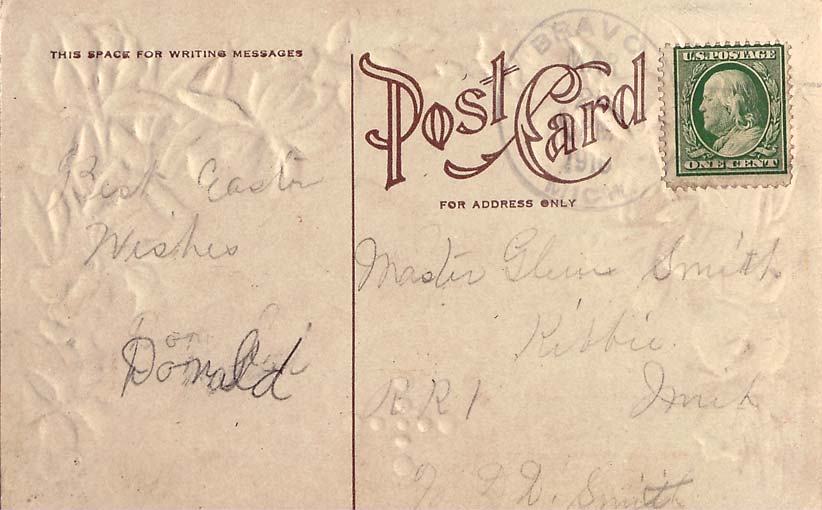 THIS SPACE FOR WRITING MESSAGES
Post Card
FOR ADDRESS ONLY
BRAVO
1910
MICH.
U.S. POSTAGE
ONE CENT
Best Easter
Wishes
Donald
Master Glenn Smith
Kibbie
RR1 Mich
D. Smith